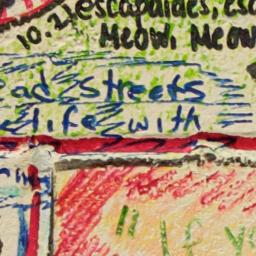 10.21 @escapaides, esc
Meow. Meow
ad Streets
life with
"IF Y